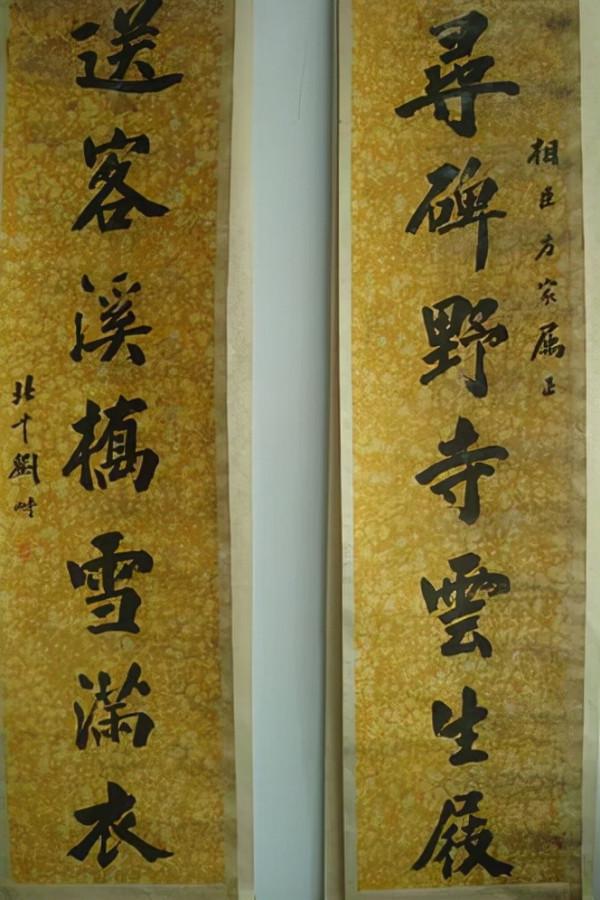 相臣方家属正
尋碑野寺雲生屐
送客溪橋雪滿衣
劉